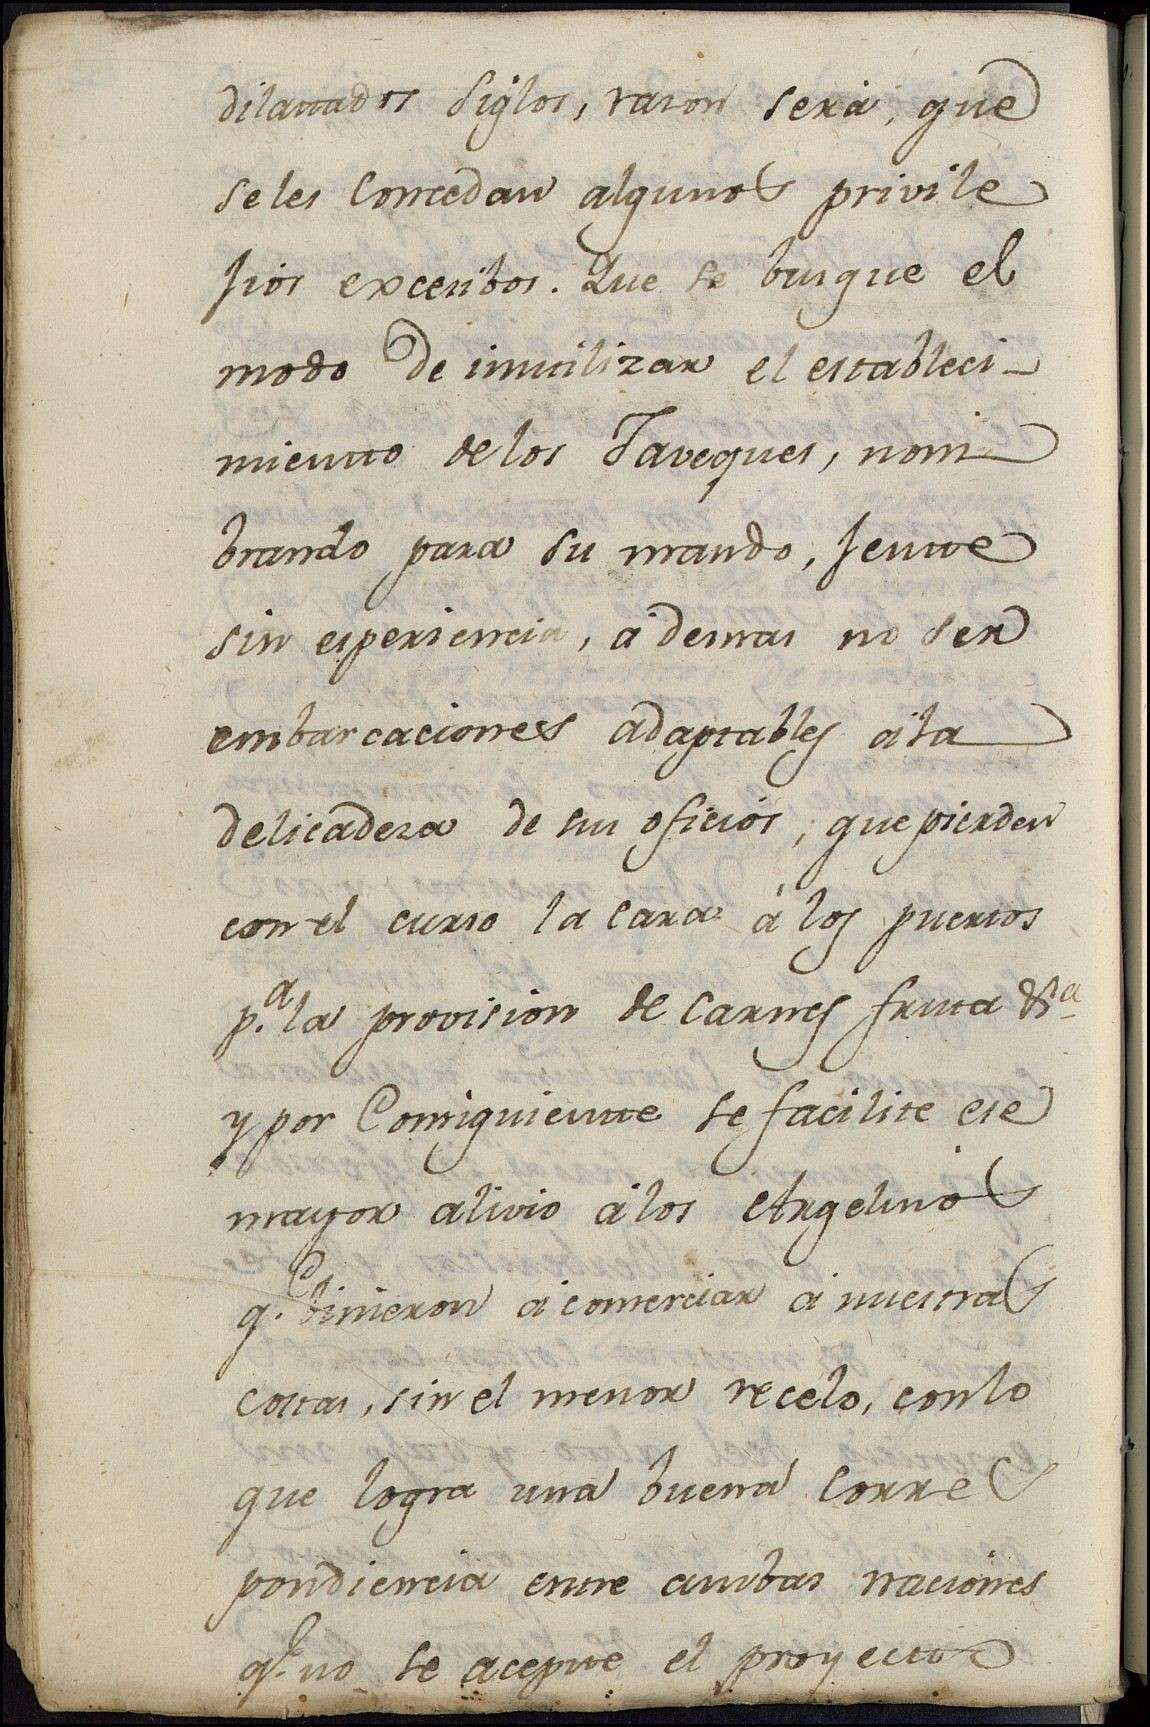 dilattados siglos, rason será, que
seles concedan algunos privile
jios excesibos. Que se busque el
modo de inutilizar el estableci-
miento delos Javeques, nom
brando para su mando, jente
sin esperiencia, ademas no ser
embarcaciones adaptables ála
delicadeza de sus oficios, que pierden
con el curso la cara á los puertos
p.a la provision de carnes fruta &.a
y por Consiguiente se facilite ese
mayor alivio álos Argelinos
q.e binieron á comerciar á nuestras
costas, sin el menor recelo, conlo
que logra una buena corres
pondiencia entre ambas naciones
q.e no se acepte el proyecto